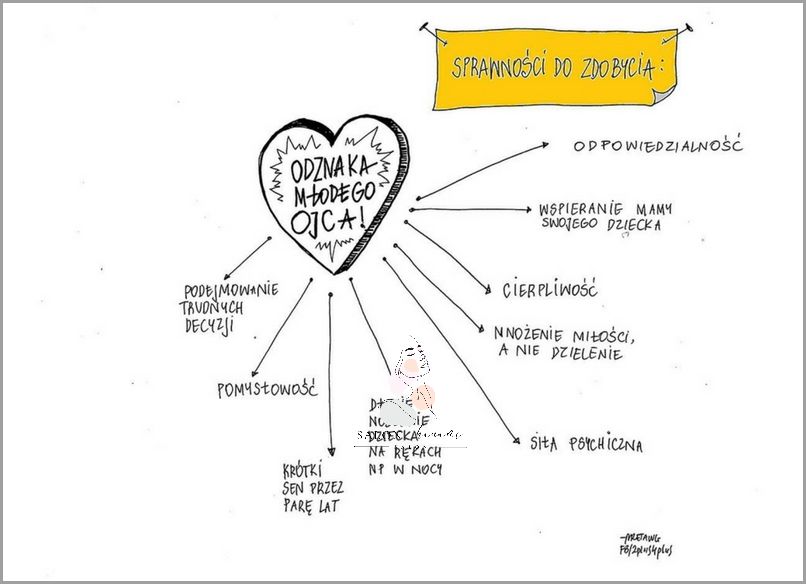 SPRAWNOŚCI DO ZDOBYCIA:
ODZNAKA
MŁODEGO
OJCA!
ODPOWIEDZIALNOŚĆ
WSPIERANIE MAMY
SWOJEGO DZIECKA
CIERPLIWOŚĆ
MNOŻENIE MIŁOŚCI,
A NIE DZIELENIE
SIŁA PSYCHICZNA
DZIECKA
NA RĘKACH
NP W NOCY
KRÓTKI
SEN PRZEZ
PARĘ LAT
POMYSŁOWOŚĆ
PODEJMOWANIE
TRUDNYCH
DECYZJI
FB/2plus4plus